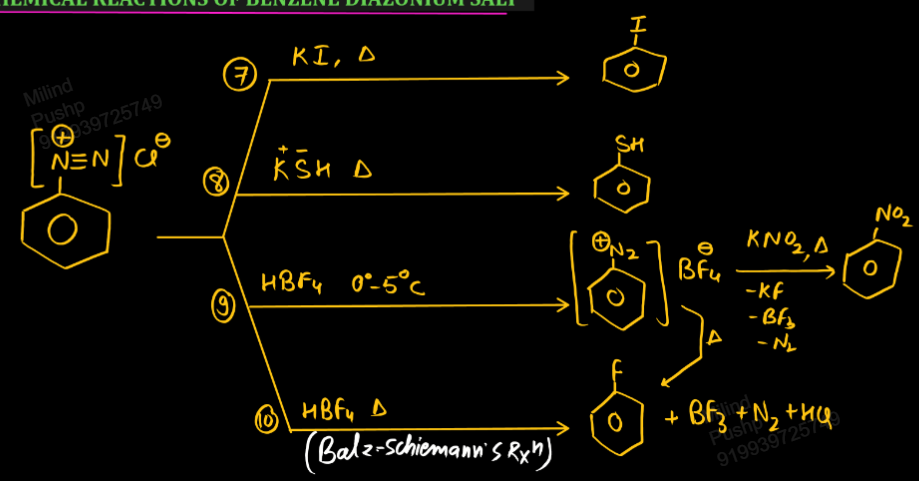 CHEMICAL REACTIONS OF BENZENE DIAZONIUM SALT
Milind
Pushp
919939725749
[N≡N]⊕ Cl⊖
⑦ KI, Δ
I
⑧ K⁺S⁻H Δ
SH
⑨ HBF₄ 0°-5°C
[⊕N₂] BF₄⊖
KNO₂, Δ
-KF
-BF₃
-N₂
NO₂
Δ
⑩ HBF₄ Δ
(Balz-Schiemann's Rxⁿ)
F
+ BF₃ + N₂ + HCl
Milind
Pushp
919939725749